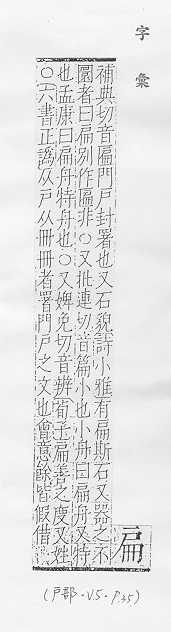 字彙
扁
補典切音匾門戶封署也又石貌詩小雅有扁斯石又器之不
圜者曰扁別作匾非○又批連切音篇小也小舟曰扁舟又特
也孟康曰扁舟特舟也○又婢免切音辨荀子扁善之度又姓
○六書正譌从戶从冊冊者署門戶之文也會意餘皆假借
(戶部・V5・P.35)